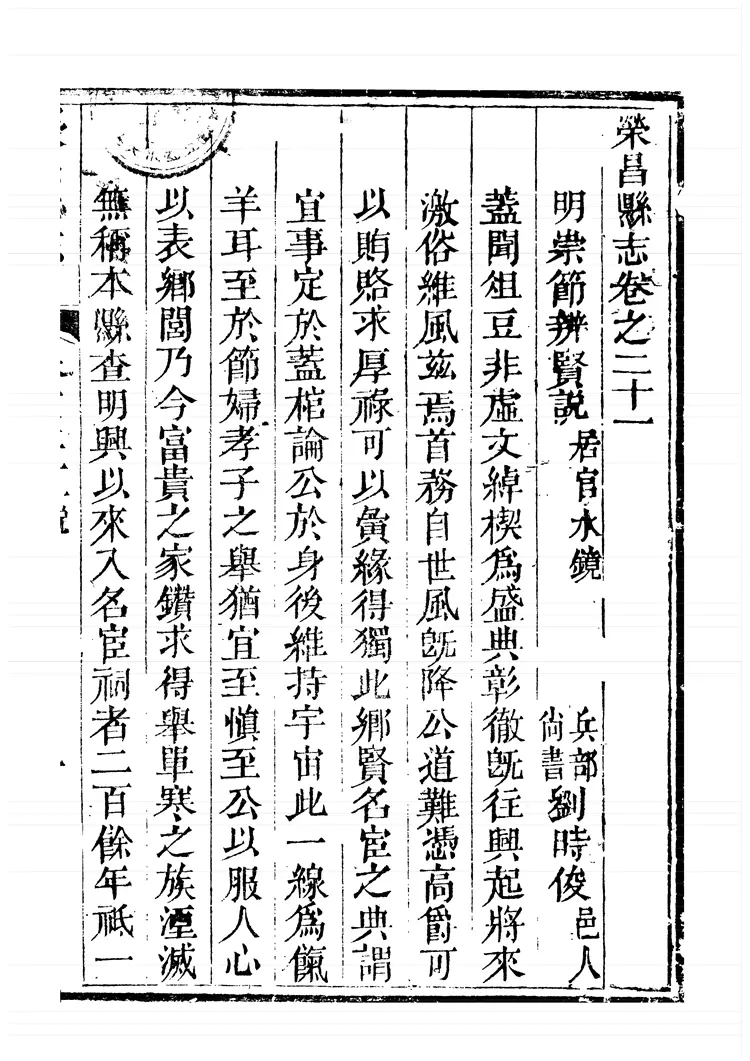 榮昌縣志卷之二十一
明崇節辨賢説 居官水鏡 兵部尚書劉時俊邑人
蓋聞俎豆非虛文綽楔爲盛典彰徹旣往興起將來
激俗維風茲焉首務自世風旣降公道難憑高爵可
以賄賂求厚祿可以夤緣得獨此鄉賢名宦之典謂
宜事定於蓋棺論公於身後維持宇宙此一線爲餼
羊耳至於節婦孝子之舉猶宜至愼至公以服人心
以表鄉閭乃今富貴之家鑽求得舉單寒之族湮滅
無稱本縣查明興以來入名宦祠者二百餘年祗一